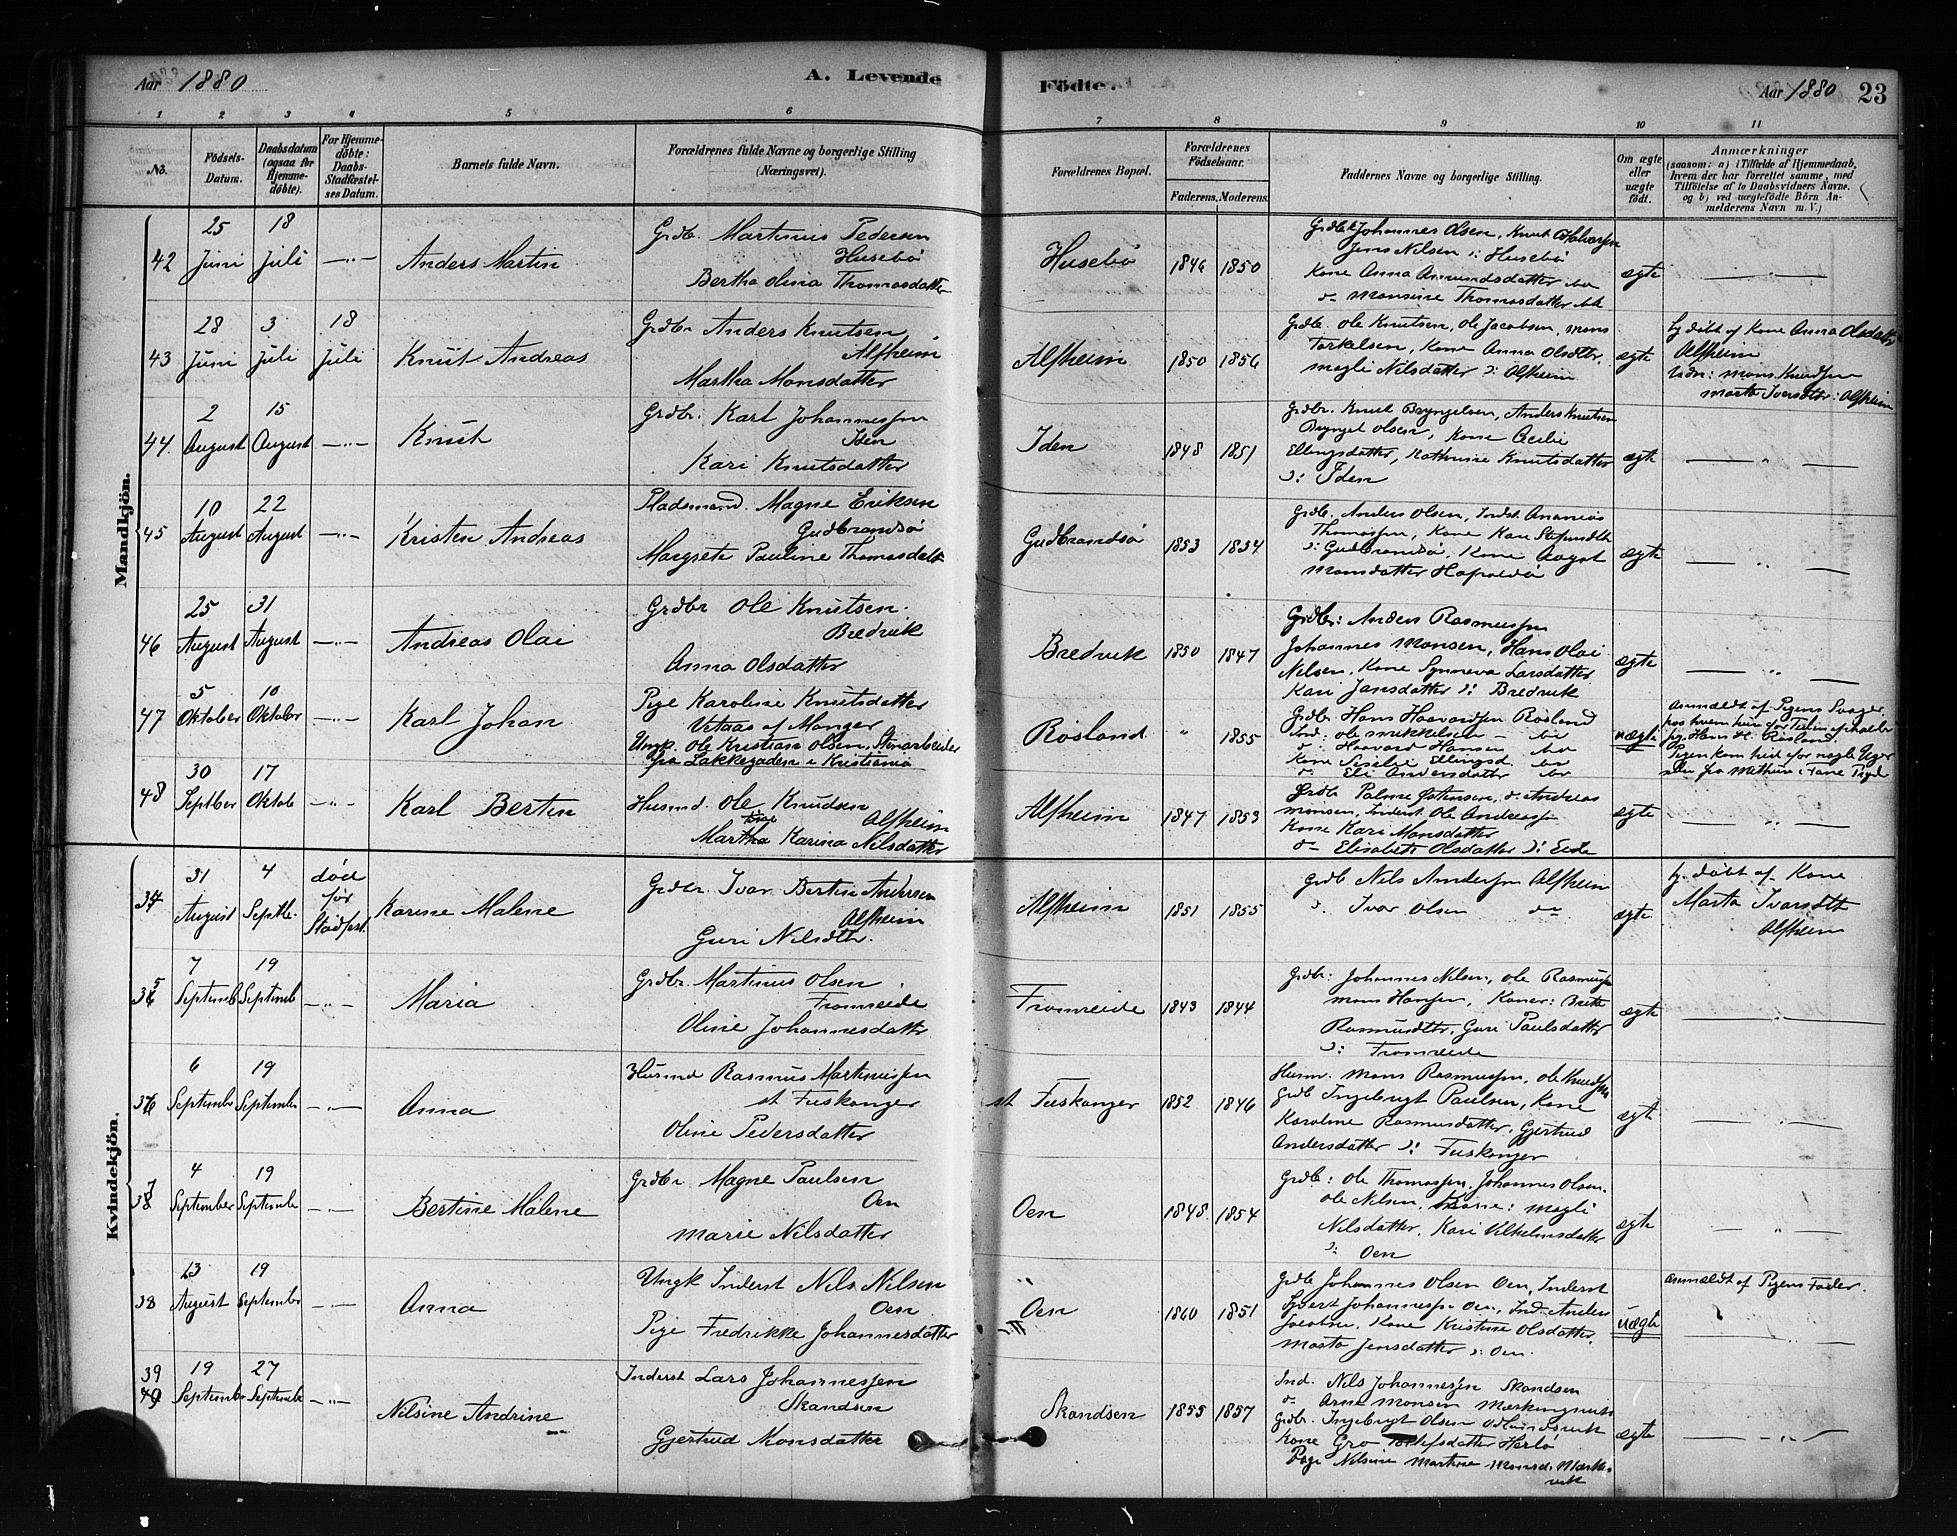 Aar 1880
A. Levende
Födte.
Aar 1880 23
1 2 3 4 5 6 7 8 9 10 11
No.
Födsels-
Datum.
Daabsdatum
(ogsaa for
Hjemme-
döbte).
For Hjemme-
döbte:
Daabs-
Stadfæstel-
ses Datum.
Barnets fulde Navn.
Forældrenes fulde Navne og borgerlige Stilling
(Næringsvei).
Forældrenes Bopæl.
Forældrenes
Födselsaar.
Faderens. Moderens.
Faddernes Navne og borgerlige Stilling.
Om ægte
eller
uægte
födt.
Anmærkninger
(saasom: a) i Tilfælde af Hjemmedaab,
hvem der har forrettet samme, med
Tilföielse af to Daabsvidners Navne.
og b) ved uægtefödte Börn An-
melderens Navn m. V.)
Mandkjön.
42
25 Juni
18 Juli
Anders Martin
Grdbr. Martinus Pedersen
Husebö
Bertha Olina Thomasdatter
Husebö
1846 1850
Grdbr Johannes Olsen, Knut Halvorsen
Jens Nilsen : Husebö
Kone Anna Amundsdatter
Monsine Thomasdatter
ægte
43
28 Juni
3 Juli
18 Juli
Knut Andreas
Grdbr Anders Knutsen
Alfheim
Martha Monsdatter
Alfheim
1850 1856
Grdb. Ole Knutsen, Ole Jacobsen, Mons
Torkelsen, Kone Anna Olsdtr.
Magli Nilsdatter : Alfheim
ægte
hj. döbt af Kone Anna Olsdatter
Alfheim
Vidn: Mons Knudsen
Marta Iversdtr : Alfheim
44.
2 August
15 August
Knut
Grdbr. Karl Johannessen
Iden
Kari Knutsdatter
Iden
1848 1851
Grdbr. Knut Bryngelsen, Anders Knutsen
Bryngel Olsen, Kone Cecilie
Ellingsdatter, Kathrine Knutsdatter
: Iden
ægte
45
10 August
22 August
Kristen Andreas
Pladsmand. Magne Eriksen
Gudbrandsö
Margrete Pauline Thomasdatt
Gudbrandsö
1853 1854
Grdb. Anders Olsen, Indst. Ananias
Thomassen, Kone Kari
: Gudbrandsö, Kone
Monsdatter
ægte
46
25 August
31 August
Andreas Olai
Grdbr Ole Knutsen.
Bredvik
Anna Olsdatter
Bredvik
1850 1847
Grdbr: Anders Rasmussen
Johannes Monsen, Hans Olai
Nilsen, Kone Synneva Larsdatter
Kari Jansdatter : Bredvik
ægte
47
5 Oktober
10 Oktober
Karl Johan
Pige Karoline Knutsdatter
Vetaas af Manger
Ungk. Ole Kristian Olsen, Stenarbeider
fra Lakkegaden i Kristiania
Rösland
" 1855
Grdbr Hans Haavardsen Rösland
Ind. Ole Mikkelsen
Haavard Hansen
Kone Siselie Ellingsd.
Eli Andersdatter
uægte
Anmeldt af Pigens Svoger,
hos hvem hun for Tiden opholder
sig Hans H. Rösland.
Pigen kom hid for nogle Uger
siden fra
48
30 Septber
17 Oktob
Karl Bertin
Husmd. Ole Knudsen
Alfheim
Kone
Martha Karina Nilsdatter
Alfheim
1847 1853
Grdb Palme Östensen, Andreas
Monsen, Inderst. Ole Andreass
Kone Kari Monsdatter
Elisabeth Olsdatter : Eide
ægte
Kvindekjön.
34
31 August
4 Septbr.
död
før
Stadfæst.
Karine Malene
Grdbr. Ivar Bertin Andersen
Alfheim
Guri Nilsdtr.
Alfheim
1851 1855
Grdb Nils Andersen Alfheim
Ivar Olsen
ægte
hj. döbt af Kone
Marta Ivarsdtr
Alfheim
35
7 Septemb
19 Septemb
Maria
Grdbr. Martinus Olsen
Fromreide
Oline Johannesdatter
Fromreide
1843 1844
Grdbr. Johannes Nilsen, Ole Rasmuss
Mons Hansen, Koner: Brite
Rasmusdtr, Guri Paulsdatter
: Fromreide
ægte
36
6 September
19 September
Anna
Husmd Rasmus Martinussen
st Fuskanger
Oline Pedersdatter
st Fuskanger
1852 1846
Husm. Mons Rasmussen, Ole Knudsen
Grdb Ingebrigt Paulsen, Kone
Karoline Rasmusdatter, Gjertrud
Andersdatter : Fuskanger
ægt
37
4 September
19 Septembr
Bertine Malene
Grdbr Magne Paulsen
Oen
Marie Nilsdatter
Oen
1848 1854
Grdb: Ole Thomassen, Johannes Olsen.
Ole Nilsen, Kone: Magli
Nilsdatter, Kari Vilhelmsdatter
: Oen
ægte
38
13 August
19 September
Anna
Ungk Inderst Nils Nilsen
Oen
Pige Fredrikke Johannesdatter
Oen
1860 1851
Grdb Johannes Olsen Oen, Inderst
Sjvert Johanness Oen, Ind. Anders
Jacobsen, Kone Kristine Olsdatter,
Marta Jensdatter : Oen.
uægte
Anmeldt af Pigens Fader.
39
19 September
27 September
Nilsine Andrine
Inderst Lars Johannessen
Skandsen
Gjertrud Monsdatter
Skandsen
1855 1857
Ind. Nils Johannessen Skandsen
Arne Monsen
Grdbr. Ingebrigt Olsen
Kone Gro Herlö
Pige Nilsine Martine Monsd.
ægte